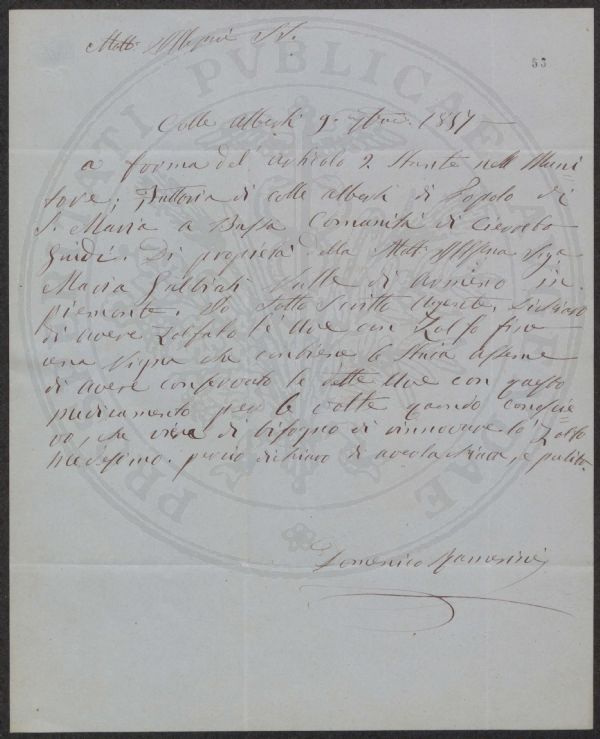 Molt: Illuſtri SS.
53
Colle alberti 9. 7bre. 1857
a forma del articolo 2 nell Muni
tore; Fattoria di colle alberti di Popolo di
S. Maria a Baſsa Comunità di Cierreto
Guidi. Di proprietà della Molt: Sigra
Maria Galbiati di Armeno in
piemonte. Io Sotto Scritto Agente. Dichiaro
di avere Zolfato le Uve con Zolfo fino
una Vigna che contiene 6 Staia
di avere conſervato le dette Uve con queſto
medicamento per 6 volte quando conoſcie
va, che di biſogno di rinnovare lo Zolfo
medeſimo. percio dichiaro di averla e pulita
Domenico
PRIVATI PVBLICAE